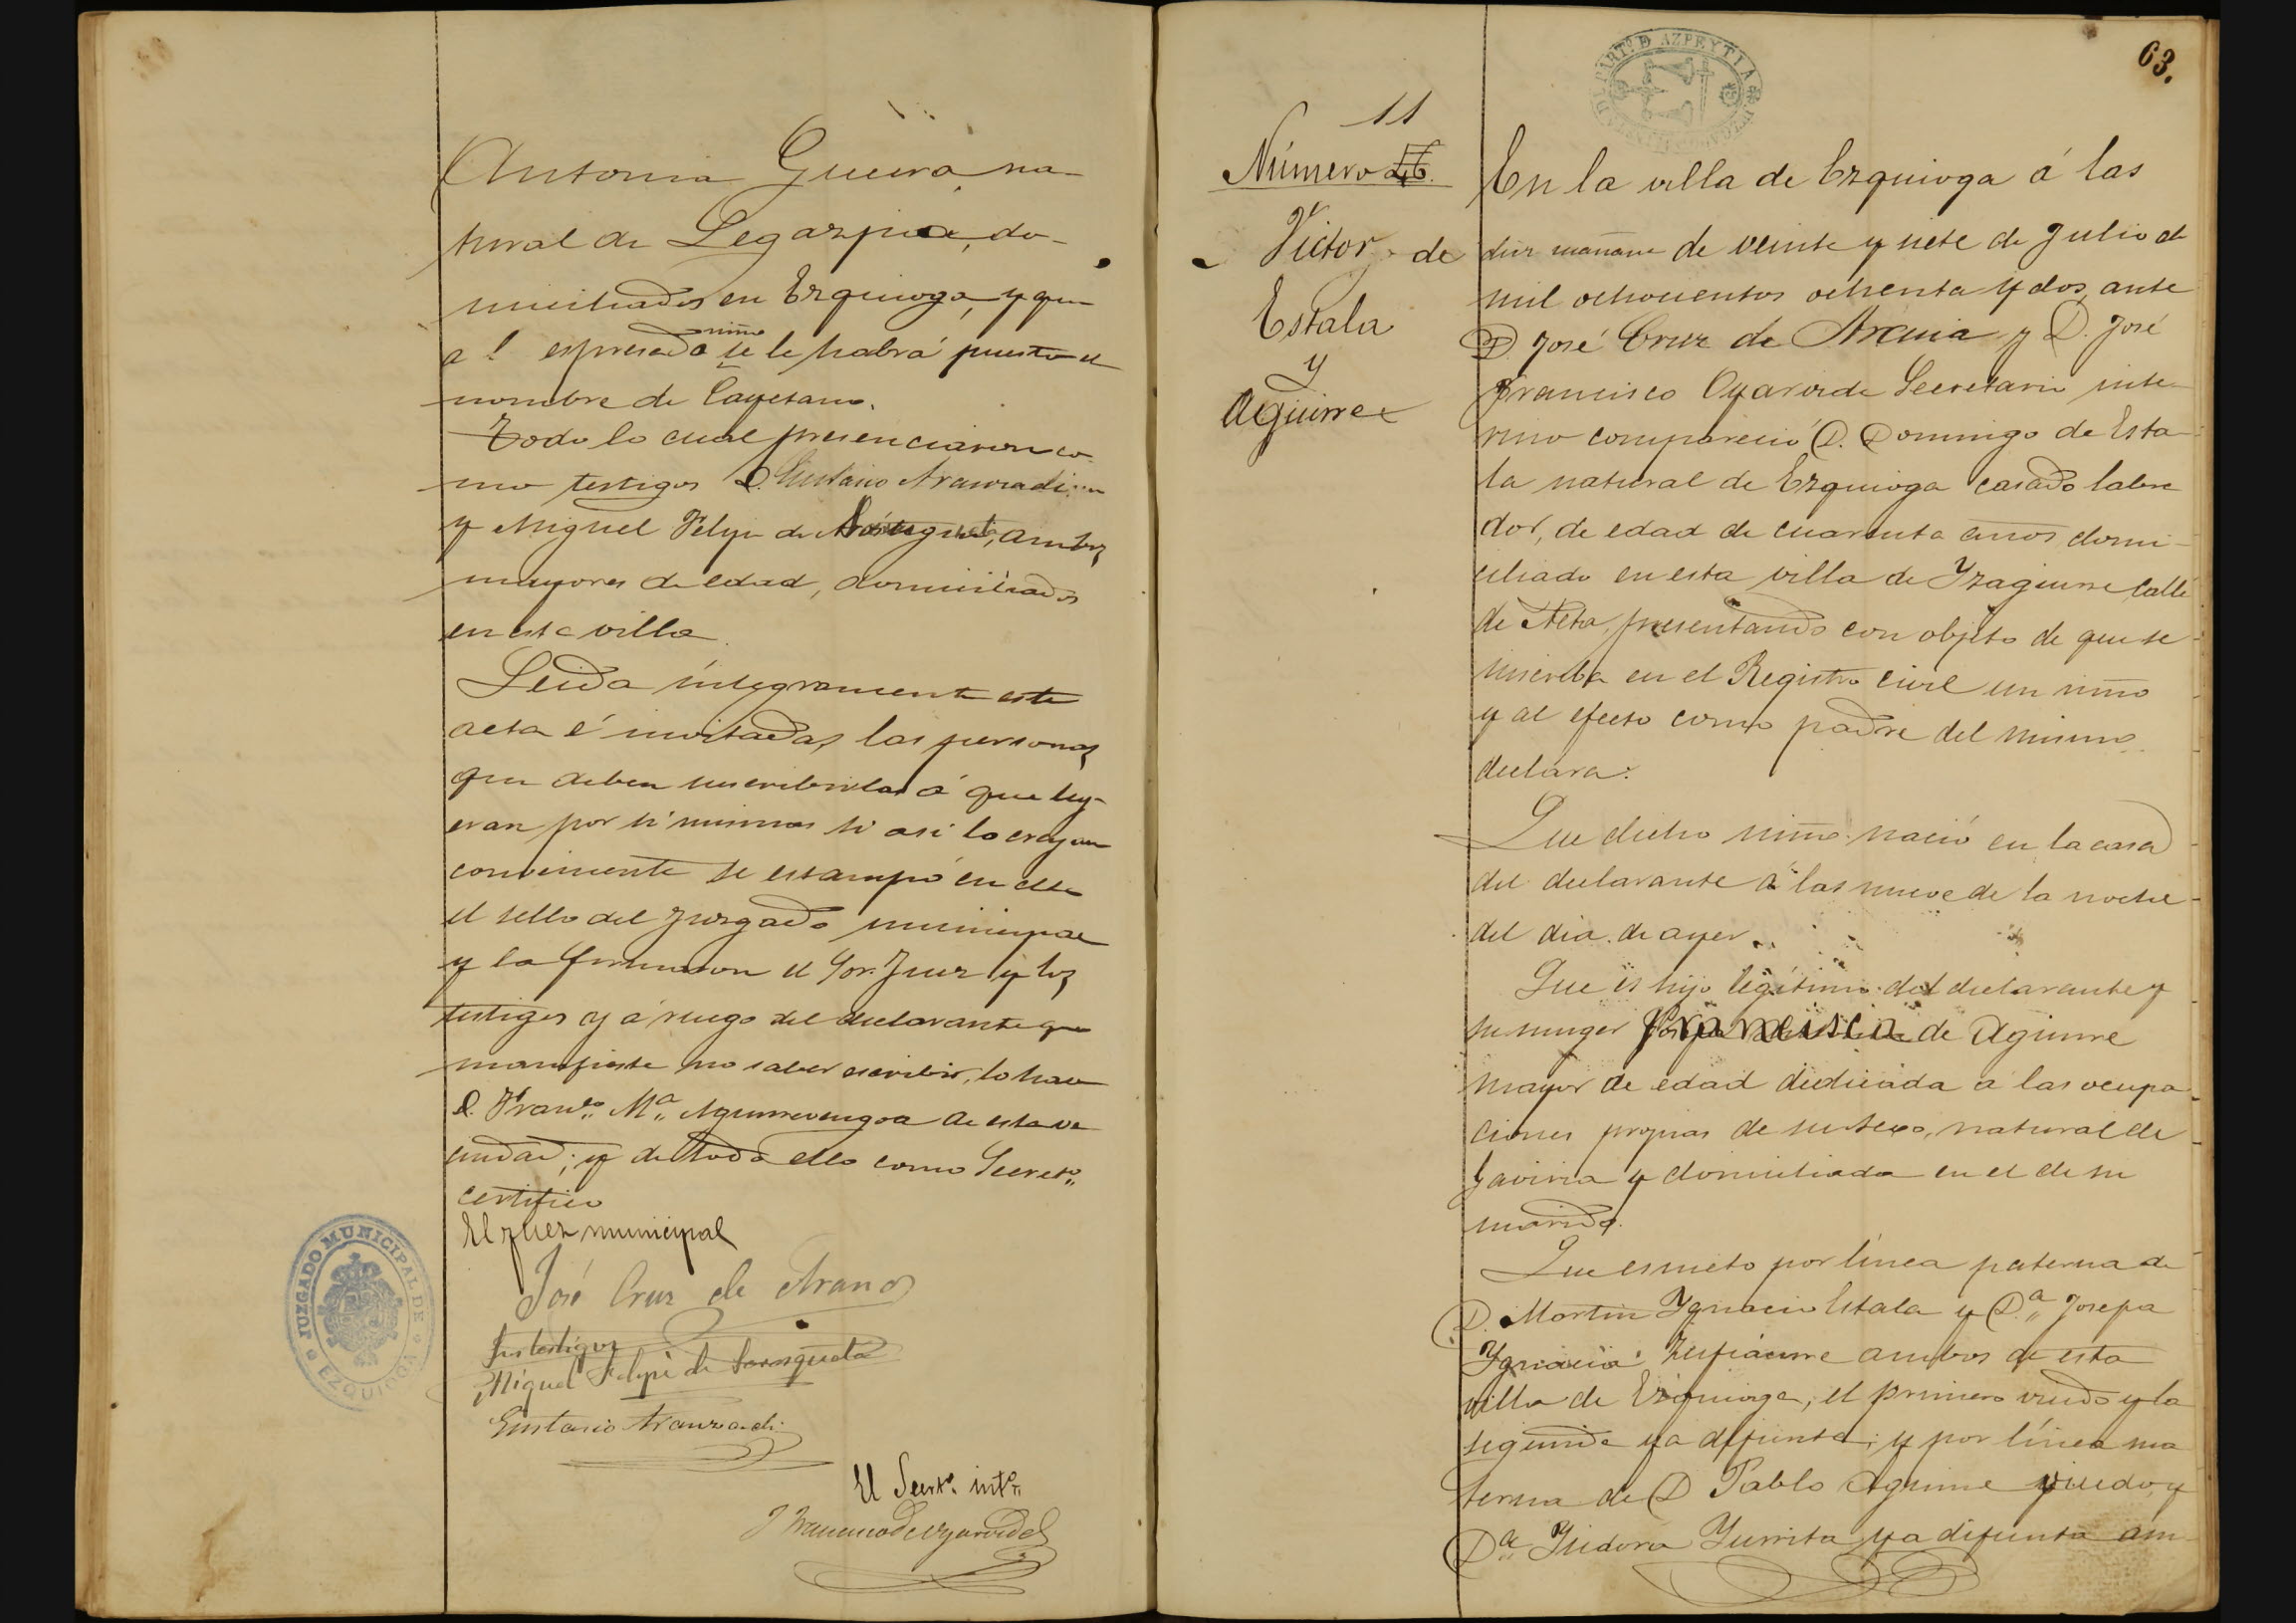 Antonia Guerra, na-
tural de Legazpia, do-
miciliados en Ezquioga, y que
a l espresado niño se le habrá puesto el
nombre de Cayetano.
Todo lo cual presenciaron co-
mo testigos D. Eustasio Aranzadi
y Miguel Felipe de ambos
mayores de edad, domiciliados
en esta villa.
Leida íntegramente esta
acta é invitadas las personas
que deben suscribirla á que ley-
eran por si mismas si asi lo creyan
conveniente se estampó en ella
el sello del Juzgado municipal
y la firmaron el Sor. Juez y los
testigos y á ruego del declarante que
manifiesta no saber escribir, lo hace
D. Franco. Ma. Aguirrevengoa de esta ve
cindad; y de todo ello como Secreto.
certifico
El juez municipal
José Cruz de Arana
Los testigos
Miguel Felipe de
Eustasio Aranzadi
El Secreto. into.
J Francisco de Oyarvide
JUZGADO MUNICIPAL DE EZQUIOGA
63.
PARTº. D AZPEYTIA
11
Número 46.
Victor de
Estala
y
Aguirre
En la villa de Ezquioga á las
diez mañana de veinte y siete de Julio de
mil ochocientos ochenta y dos, ante
D. José Cruz de Arana y D. José
Francisco Oyarvide Secretario inte-
rino compareció D. Domingo de Esta-
la natural de Ezquioga casado labra
dor, de edad de cuarenta años domi-
ciliado en esta villa de Yzaguirre, calle
de presentando con objeto de que se
inscriba en el Registro civil un niño
y al efecto como padre del mismo
declara:
Que dicho niño nació en la casa
del declarante á las nueve de la noche
del dia de ayer.
Que es hijo legítimo del declarante y
su muger Francisca de Aguirre
mayor de edad dedicada á las ocupa-
ciones propias de su sexo, natural de
Gaviria y domiciliada en el de su
marido.
Que es nieto por línea paterna de
D. Martin Ygnacio Estala y Da. Josepa
Ygnacia ambos de esta
villa de Ezquioga, el primero viudo y la
segunda ya difunta; y por línea ma
terna de D Pablo Aguirre viudo, y
Da. Ysidora Yurrita ya difunta am